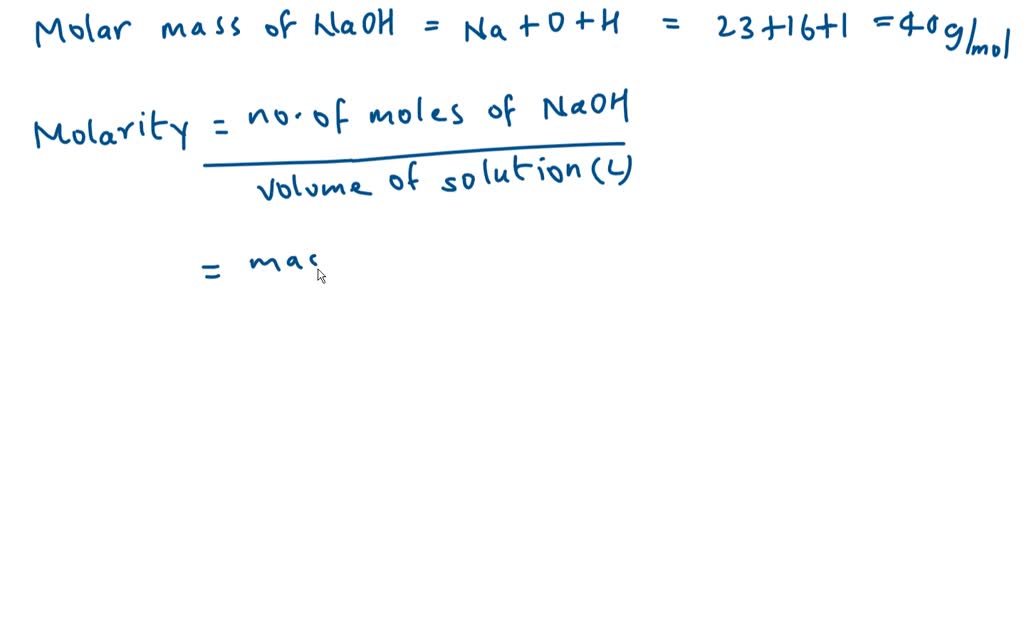 Molar mass of NaOH = Na + O + H = 23+16+1 = 40g/mol
Molarity = no. of moles of NaOH
volume of solution (L)
= mas